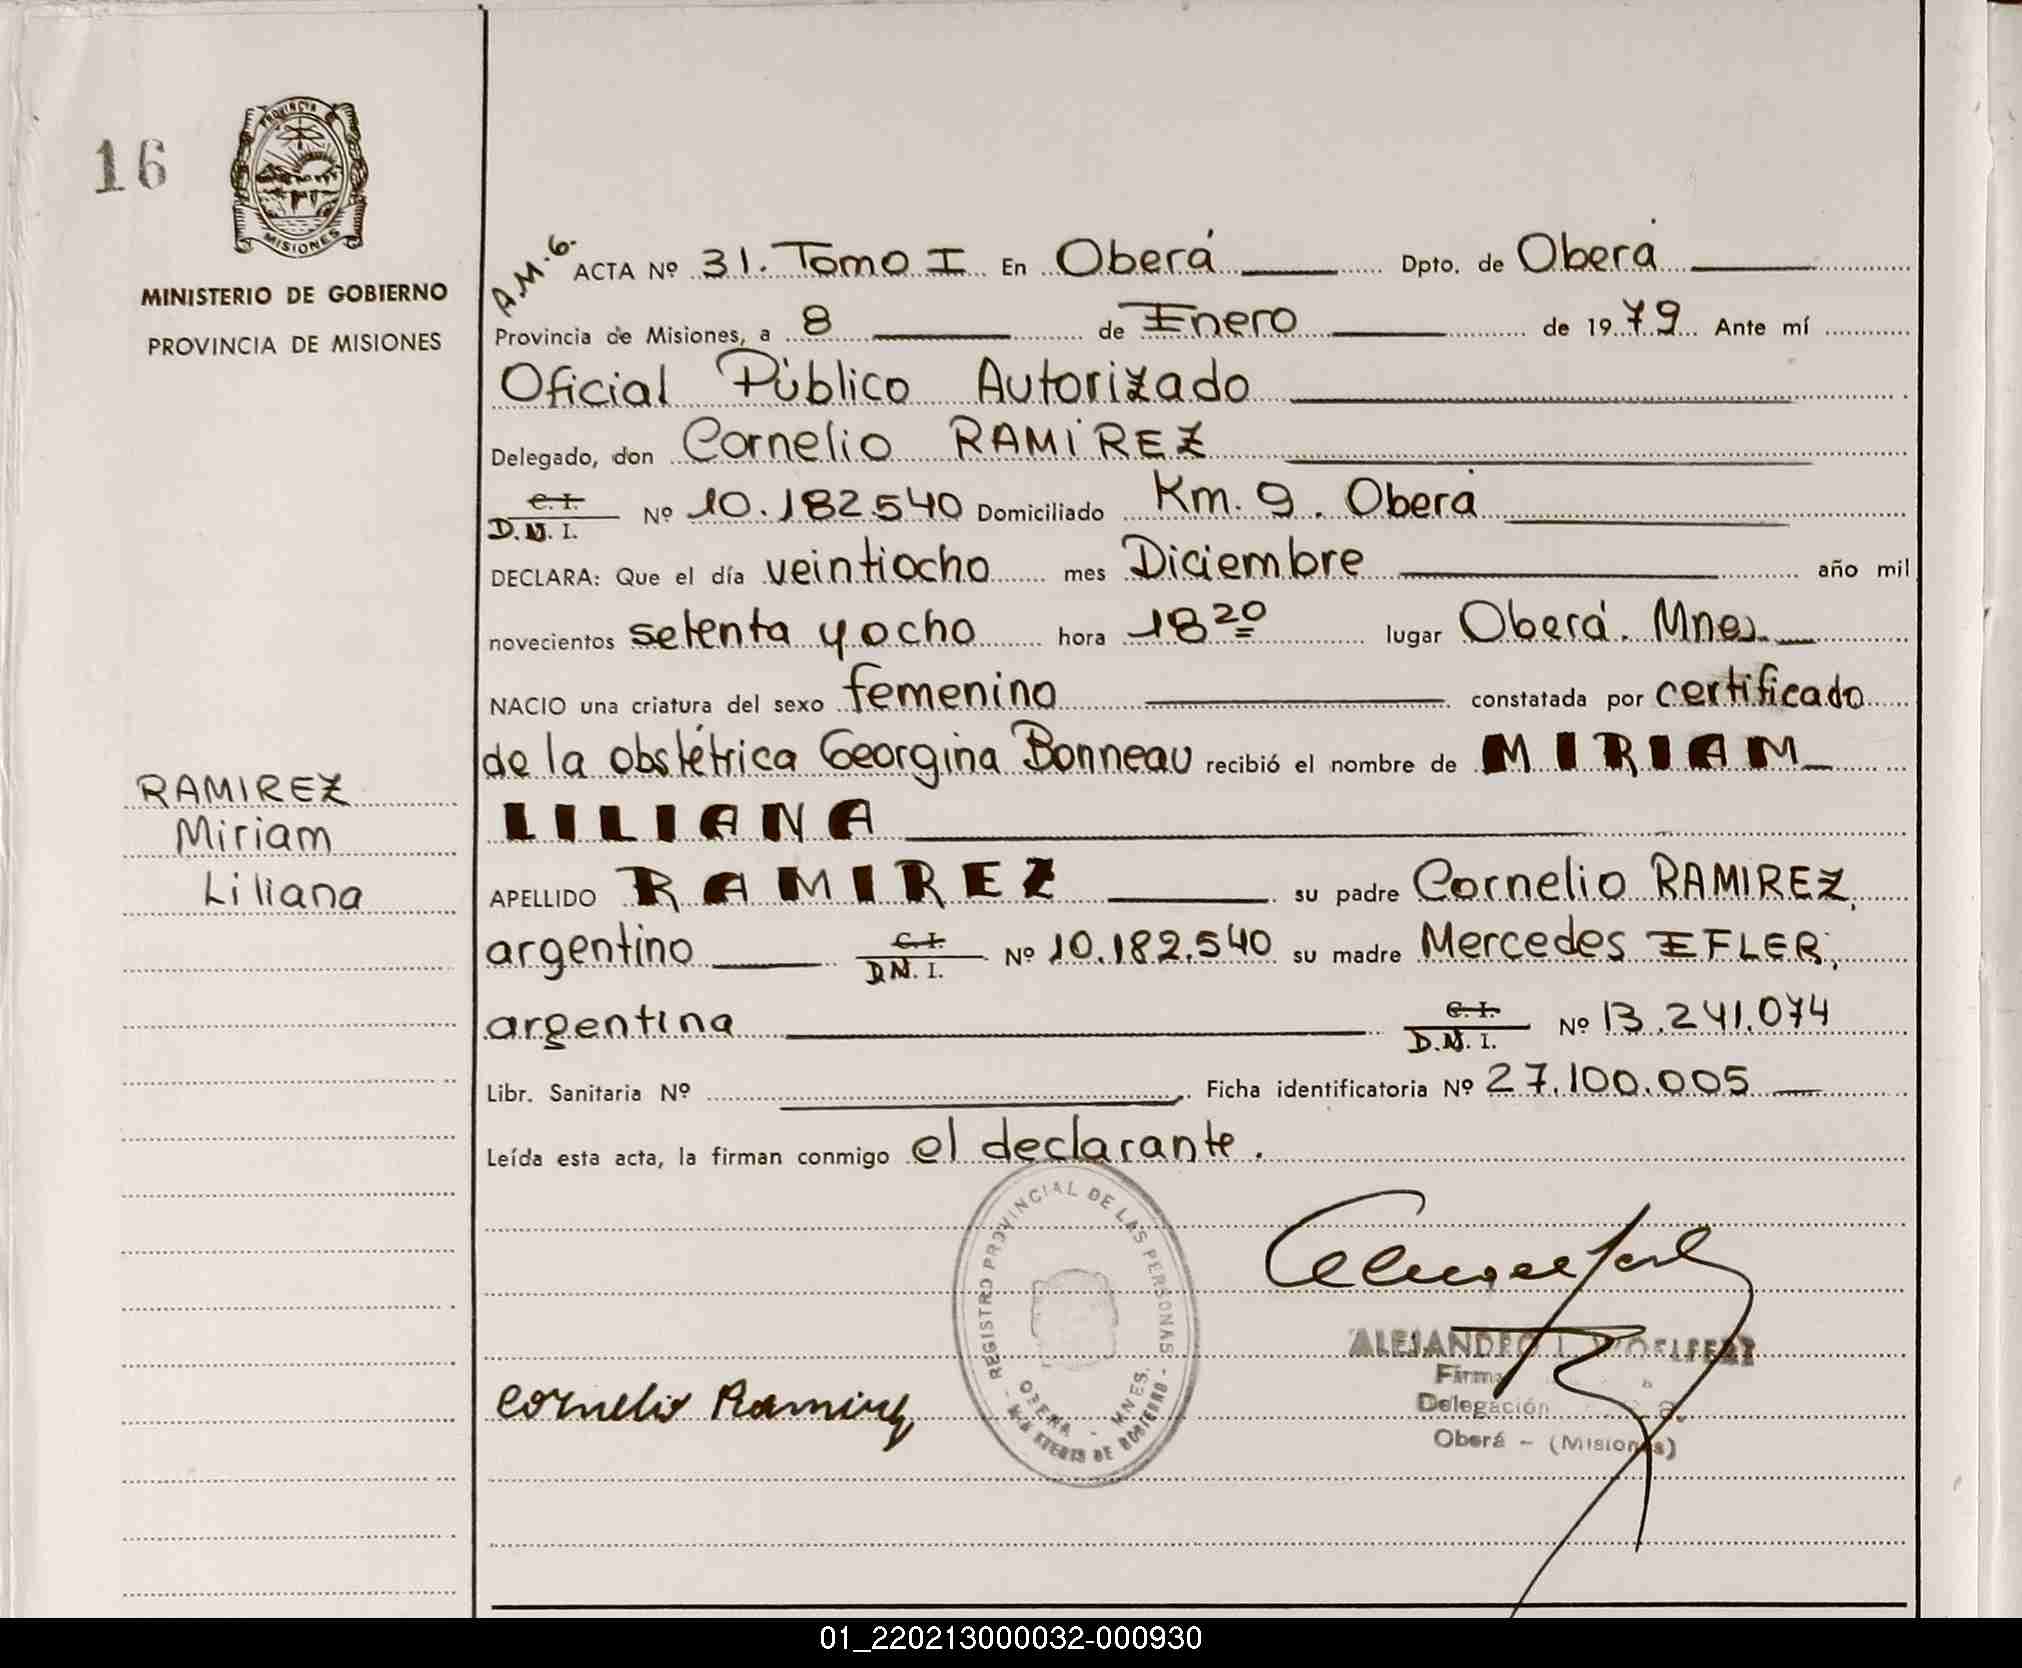 16
PROVINCIA
MISIONES
MINISTERIO DE GOBIERNO
PROVINCIA DE MISIONES
RAMIREZ
Miriam
Liliana
A.M.6.
ACTA Nº 31. Tomo I En Oberá Dpto. de Oberá
Provincia de Misiones, a 8 de Enero de 1979 Ante mí
Oficial Público Autorizado
Delegado, don Cornelio RAMIREZ
C.I.
D.N.I. Nº 10.182.540 Domiciliado Km. 9. Oberá
DECLARA: Que el día veintiocho mes Diciembre año mil
novecientos setenta y ocho hora 18 20 lugar Oberá. Mnes.
NACIO una criatura del sexo femenino constatada por certificado
de la obstétrica Georgina Bonneau recibió el nombre de MIRIAM
LILIANA
APELLIDO RAMIREZ su padre Cornelio RAMIREZ,
argentino C.I. D.N.I. Nº 10.182.540 su madre Mercedes EFLER,
argentina C.I. D.N.I. Nº 13.241.074
Libr. Sanitaria Nº Ficha identificatoria Nº 27.100.005
Leída esta acta, la firman conmigo el declarante.
REGISTRO PROVINCIAL DE LAS PERSONAS
OBERA - MNES.
DE GOBIERNO
Cornelio Ramirez
ALEJANDRO
Firma
Delegación
Oberá - (Misiones)
01_220213000032-000930